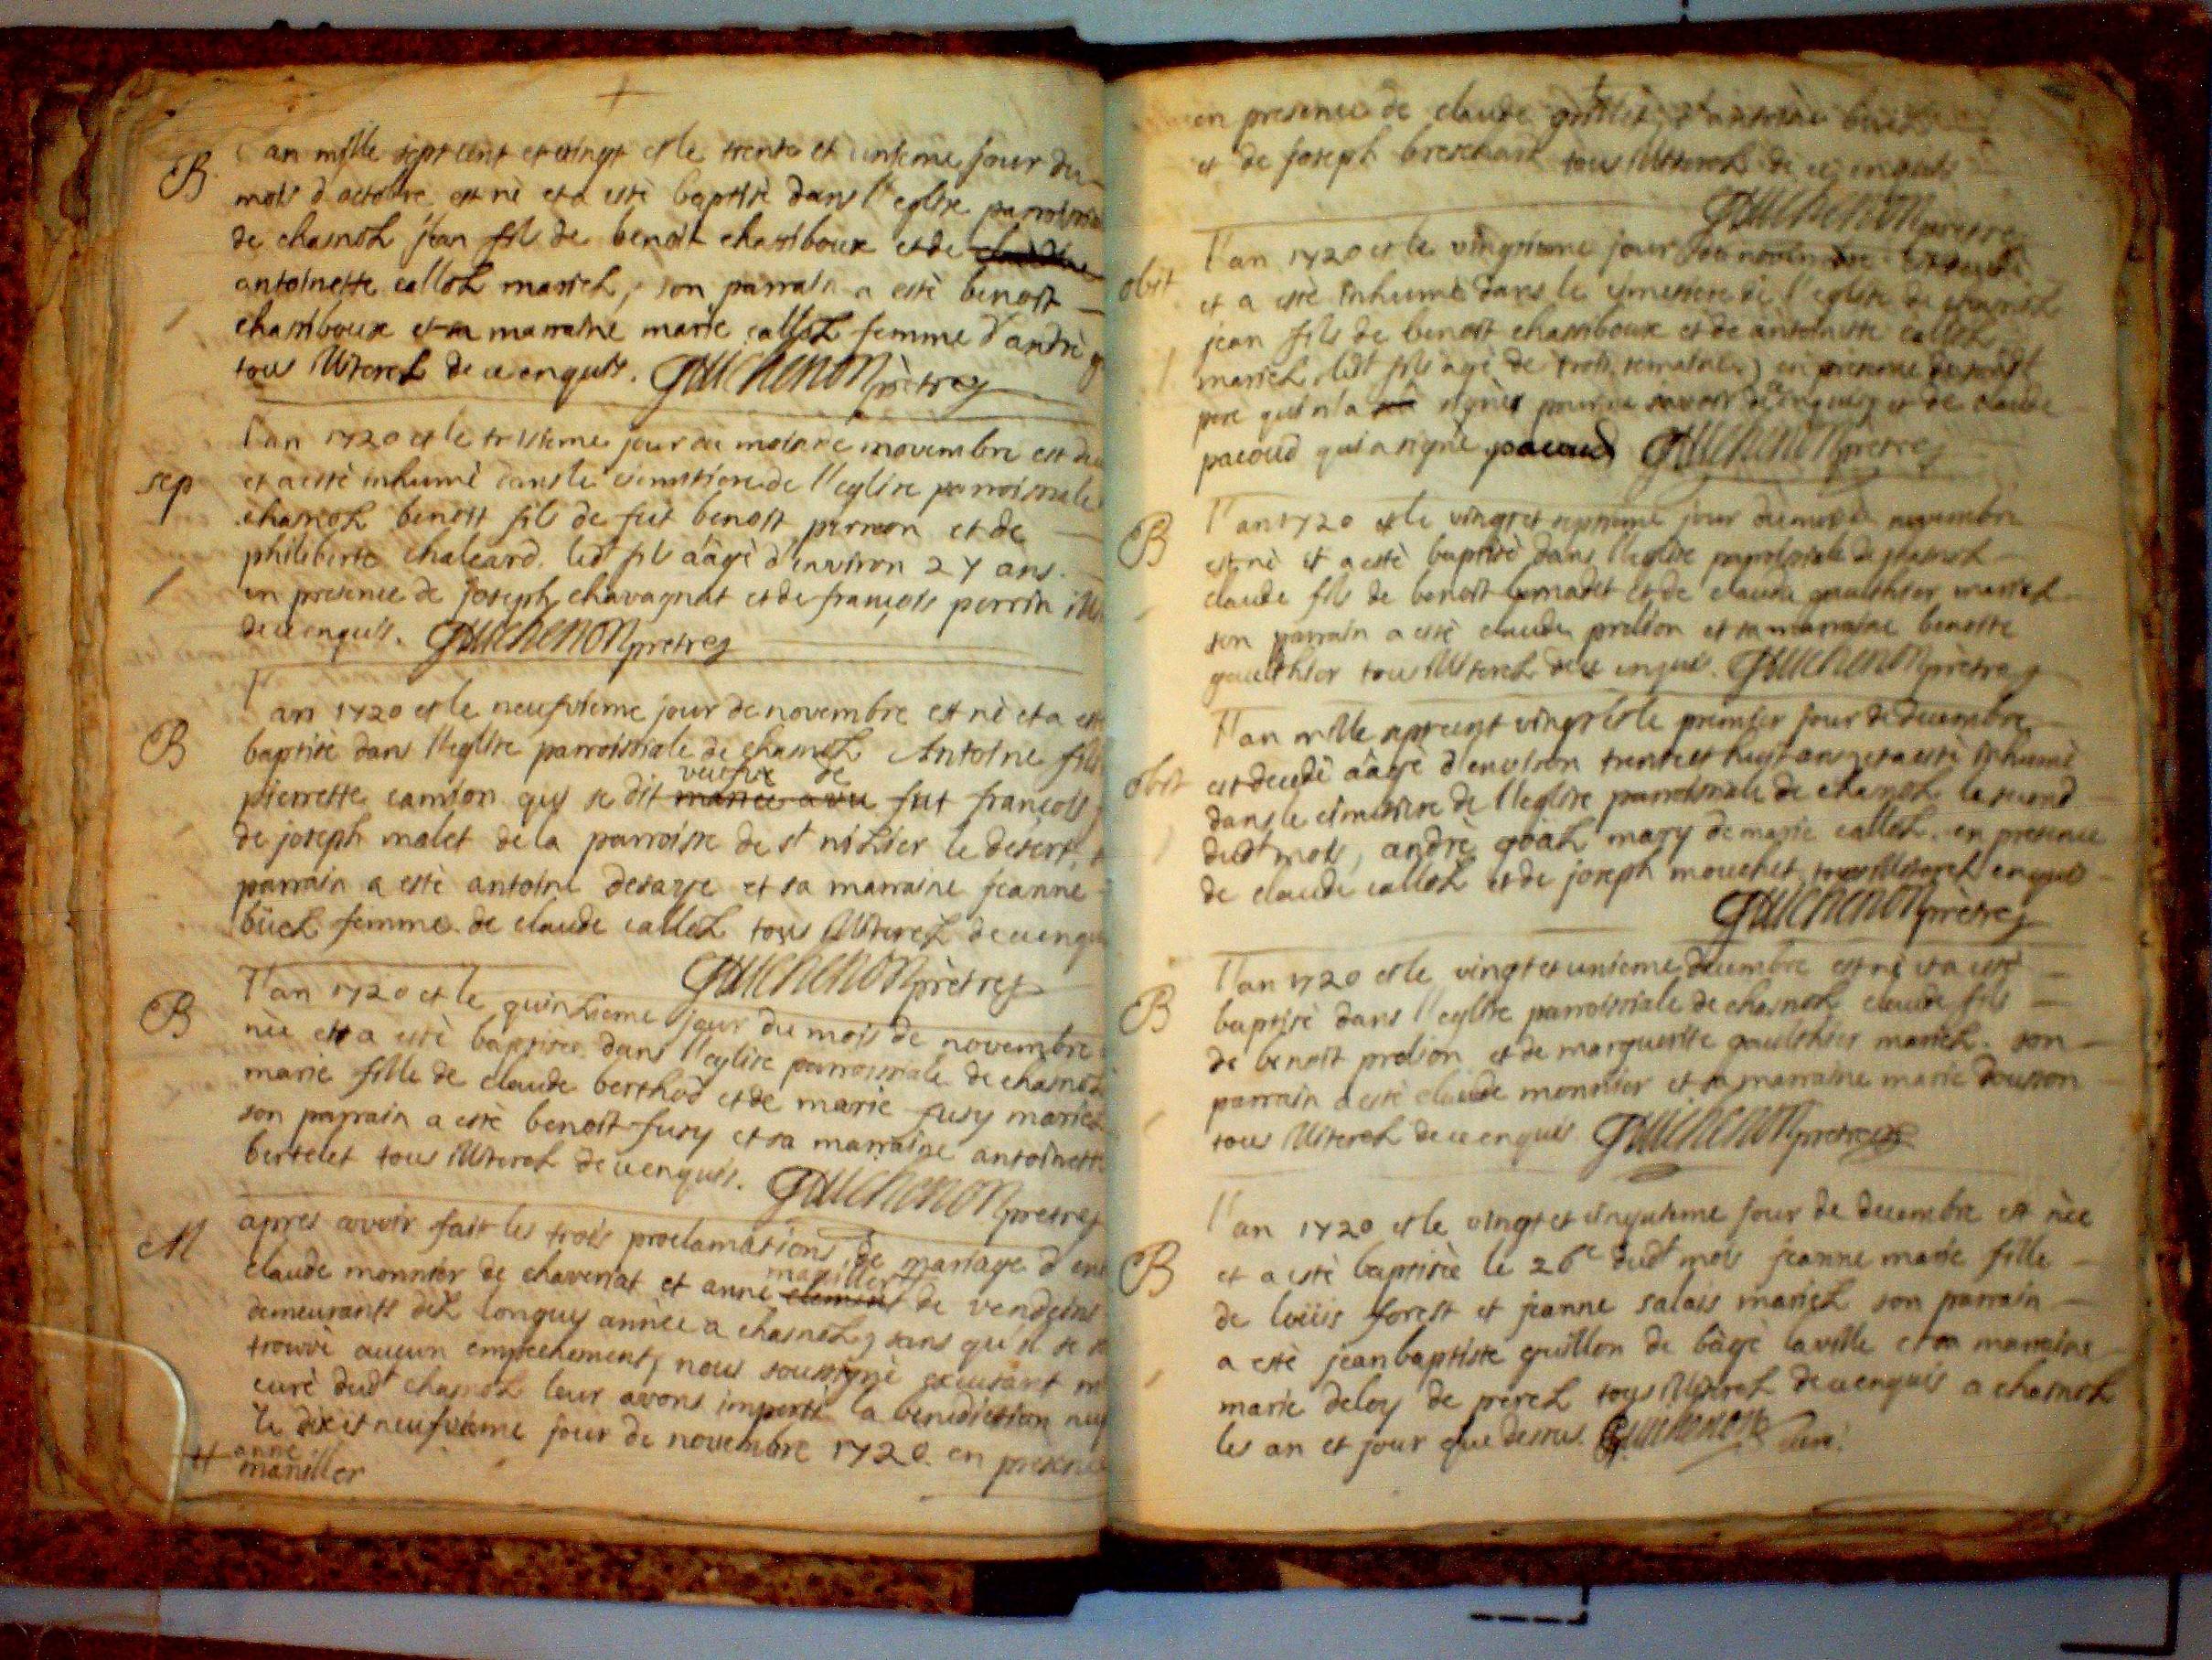 B
l'an mille sept cent et vingt et le trente et unieme jour du
mois d'octobre est nè et a estè baptisè dans l'eglise parroissia
de chasnoz jean fils de benoit chassiboux et de
antoinette calloz mariez, son parrain a estè benoist
chassiboux et sa marraine marie calloz femme d'andrè g
tous illiterez de ce enquis. Guichenon prètre
sep
l'an 1720 et le troisieme jour du mois de novembre est de
et a estè inhumè dans le cimistiere de l'eglise parroissiale
chasnoz benoist fils de feu benoist perreon et de
philiberte chaleard. led fils aâgè d'environ 27 ans.
en presence de joseph chavagnat et de françois perrin ill
de ce enquis. Guichenon prètre
B
l'an 1720 et le neufvieme jour de novembre est nè et a est
baptisè dans l'eglise parroissiale de chasnoz Antoine fils
veufve de
pierrette camion qui se dit mariée avec fut françois
de joseph malet de la parroisse de st nizier le desert,
parrain a estè antoine desaye et sa marraine jeanne
büez femme de claude calloz tous illiterez de ce enqu
Guichenon prètre
B
l'an 1720 et le quinzieme jour du mois de novembre
née et a estè baptisée dans l'eglise parroissiale de chasnoz
marie fille de claude berthod et de marie fusy mariez
son parrain a estè benoist fusy et sa marraine antoinette
bertelet tous illiterez de ce enquis. Guichenon prètre
M
apres avoir fait les trois proclamations de mariage d'ent
claude monnier de chaveriat et anne maniller de vendeins
demeurants dez longuy année a chasnoz, sans qu'il se s
trouvè aucun empechement, nous soussignè exerçant
curè dudt chasnoz leur avons imparti la benediction nup
le dix et neufvieme jour de novembre 1720. en presence
anne
maniller
en presence de claude
et de joseph breschard tous illiterez de ce enquis
Guichenon prètre
obit
l'an 1720 et le vingtieme jour de novembre est decedè
et a estè inhumè dans le cimetiere de l'eglise de chasnoz
jean fils de benoist chassiboux et de antoinette calloz
mariez, ledt fils agè de trois semaines, en presence de sondt
pere qui n'a signèr pour ne savoir de ce enquis et de claude
pacoud qui a signè pacoud Guichenon prètre
B
l'an 1720 et le vingt et septieme jour du mois de novembre
est nè et a estè baptisè dans l'eglise parroissiale de chasnoz
claude fils de benoist et de claude gaulthier mariez
son parrain a estè claude prelion et sa marraine benoite
gaulthier tous illiterez de ce enquis. Guichenon prètre
obit
l'an mille sept cent vingt et le premier jour de decembre
est decedè aâgè d'environ trente et huyt ans et a estè inhumè
dans le cimistiere de l'eglise parroissiale de chasnoz le second
dudt mois, andrè goiah mary de marie calloz. en presence
de claude calloz et de joseph mouchet tous illiterez enquis
Guichenon prètre
B
l'an 1720 et le vingt et unieme decembre est nè et a estè
baptisè dans l'eglise parroissiale de chasnoz claude fils
de benoist prelion et de marguerite gaulthier mariez. son
parrain a estè claude monnier et sa marraine marie
tous illiterez de ce enquis Guichenon prètre
B
l'an 1720 et le vingt et cinquieme jour de decembre est née
et a estè baptisée le 26e dudt mois jeanne marie fille
de loüis forest et jeanne salais mariez son parrain
a estè jeanbaptiste guillon de bâgè la ville et sa marraine
marie deloy de perez tous illiterez de ce enquis a chasnoz
les an et jour que dessus. Guichenon